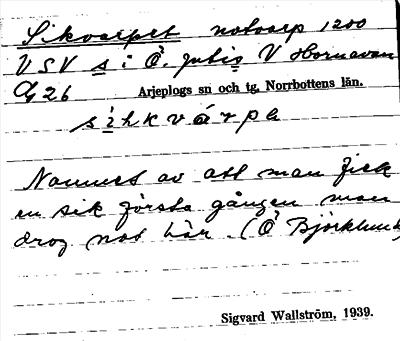 Sikvarpet notvarp 1200
V S V s i Ö. V Hornavan
26 Arjeplogs sn och tg. Norrbottens län.
sìhkvárpa
Namnet av att man fick
en sik första gången man
drog not här. (Ö Björklund)
Sigvard Wallström, 1939.